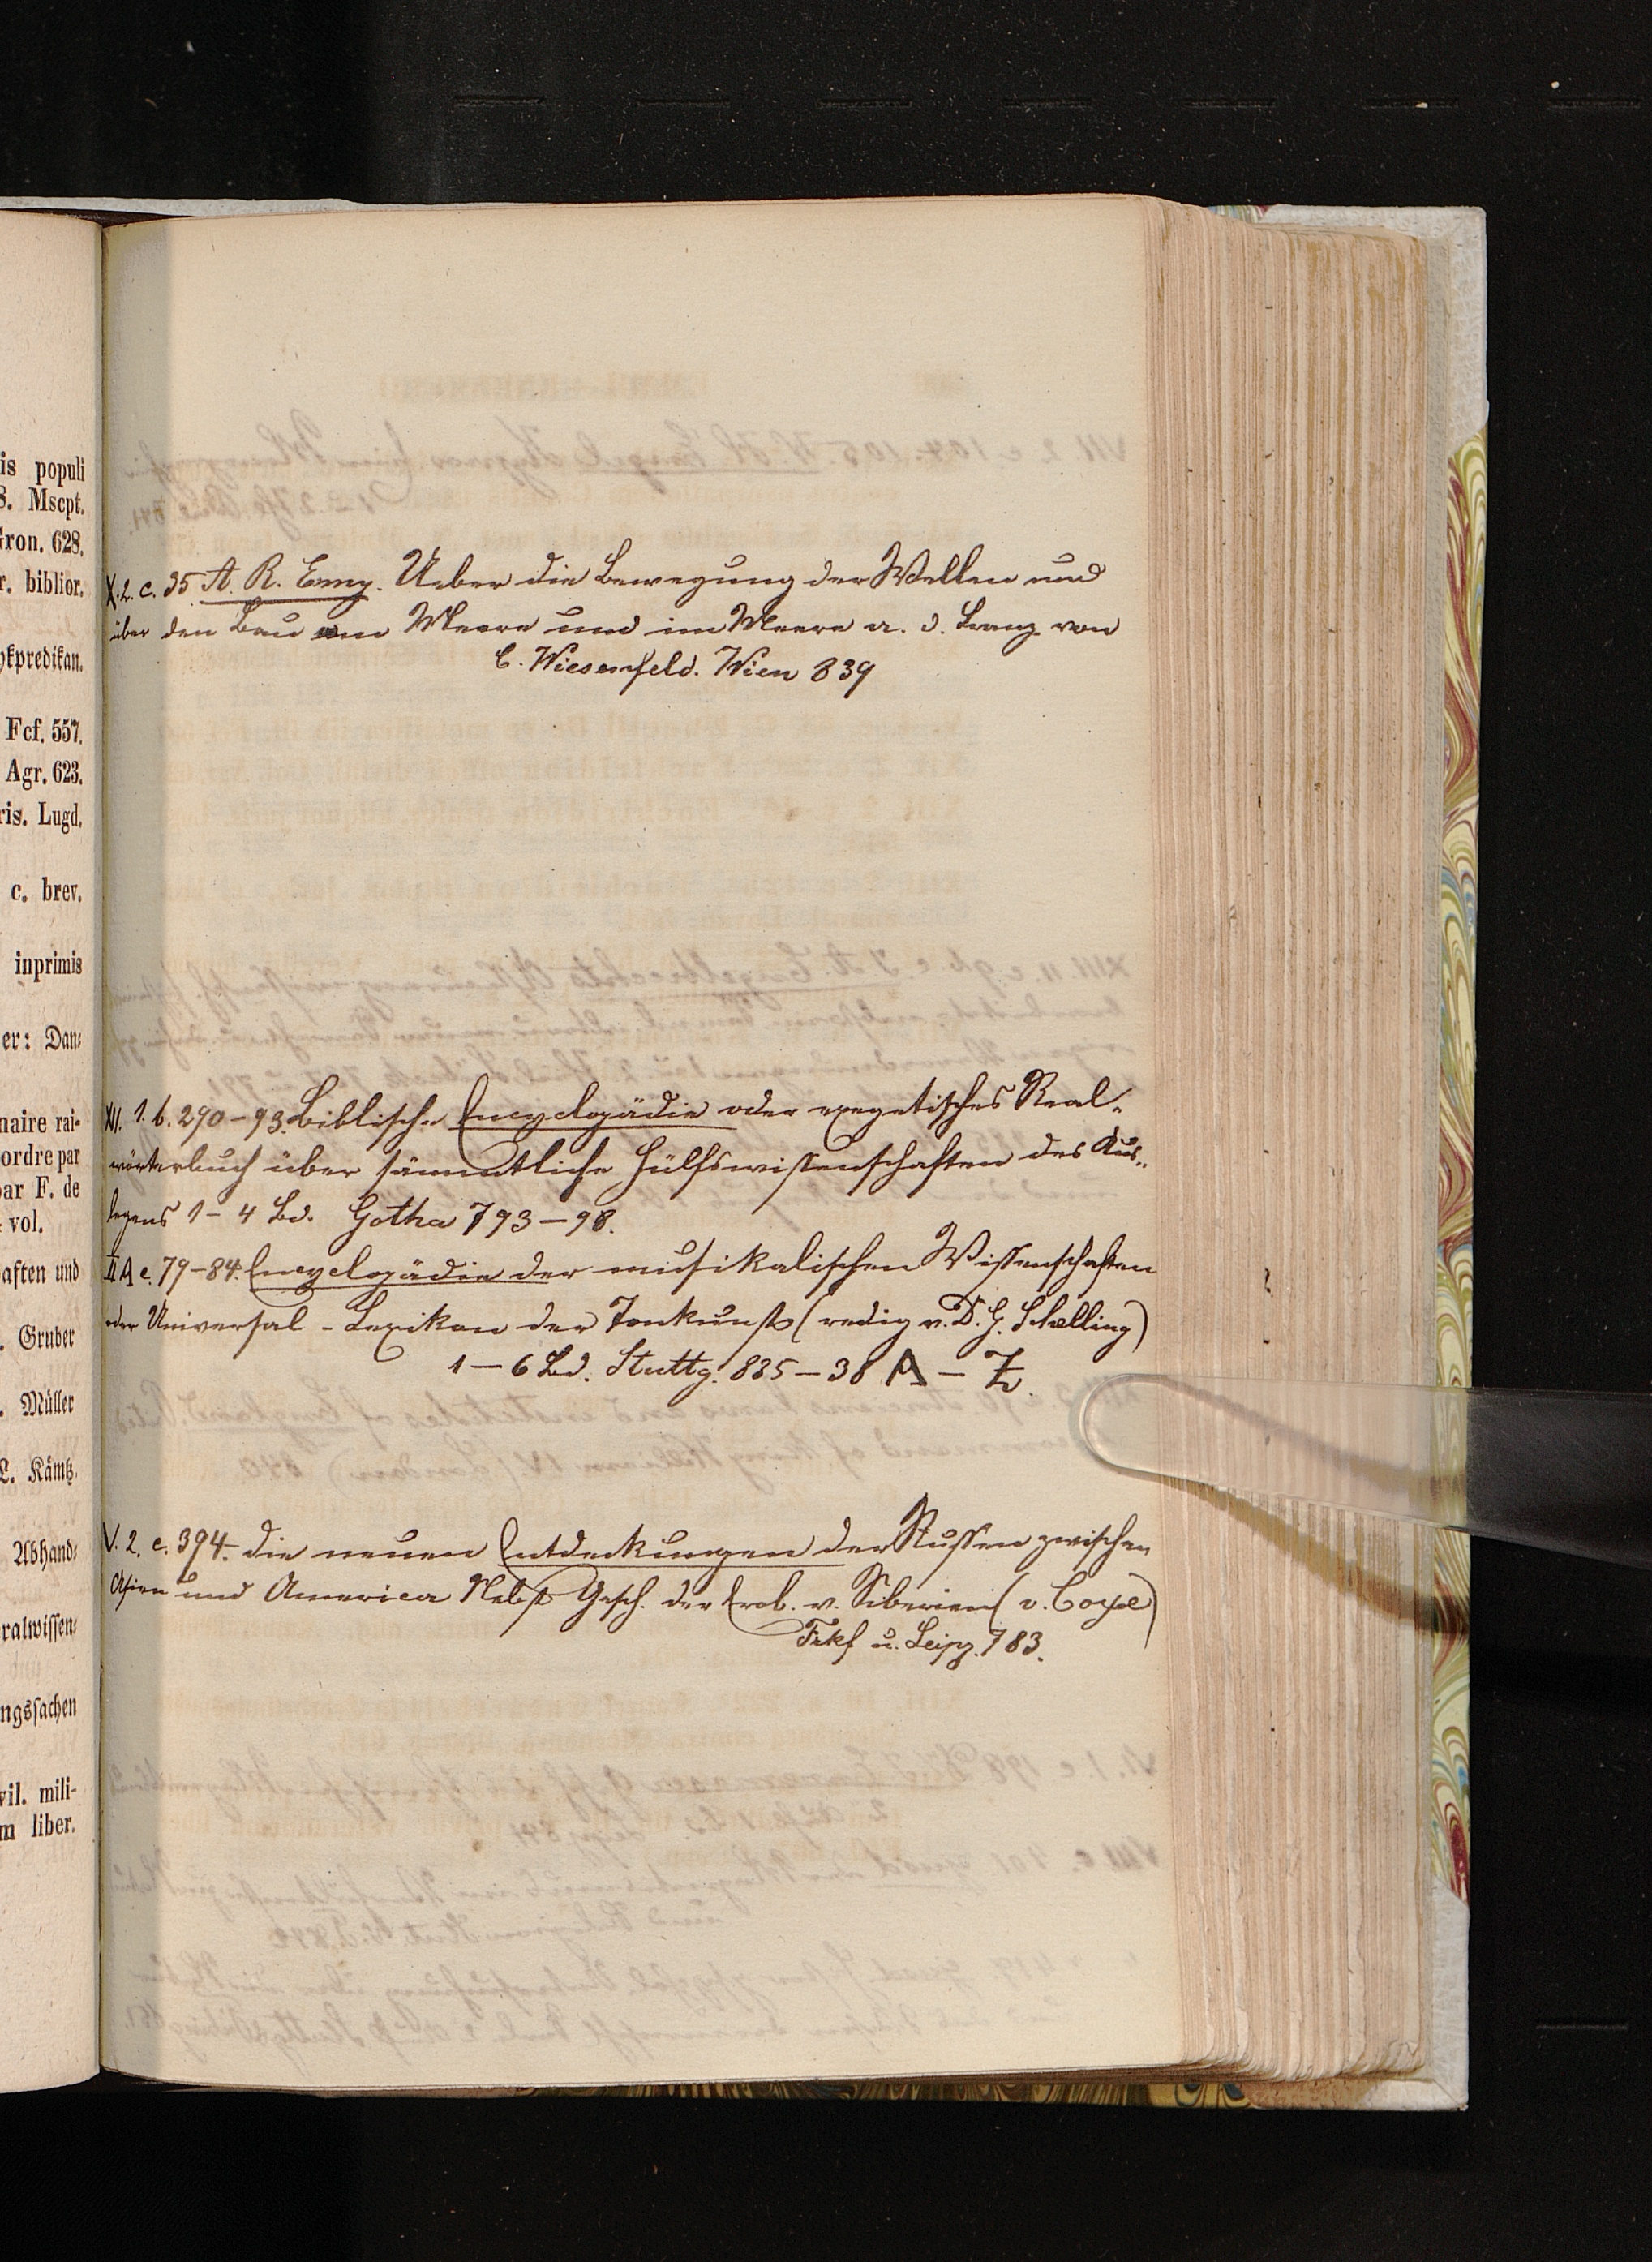 is populi
8. Mscpt.
Gron. 628.
r. biblior.
ykpredikan.
Fcf. 557.
Agr. 623.
ris. Lugd.
c. brev.
inprimis
er: Dan-
naire rai-
ordre par
par F. de
vol.
aften und
. Gruber
. Müller
L. Kämtz.
Abhand-
ralwissen-
ngssachen
vil. mili-
m liber.
X. 2. c. 35 A. R. Emy. Ueber die Bewegung der Wellen und
über den Bau am Meere und im Meere a. d. Franz. von
C. Wiesenfeld. Wien 839
XII. 1. b. 290-93. Biblische Encyclopädie oder exegetisches Real-
wörterbuch über sämmtliche Hülfswissenschaften des Aus-
legens 1-4 Bd. Gotha 793-98.
II A e. 79-84. Encyclopädie der musikalischen Wissenschaften
oder Universal-Lexikon der Tonkunst (redig v. D. G. Schilling)
1-6 Bd. Stuttg. 835-38 A-Z.
V. 2. c. 394. die neuen Entdeckungen der Russen zwischen
Asien und America Nebst Gesch. der Erob. v. Siberien (v. Coxe)
Frkf u. Leipz. 783.